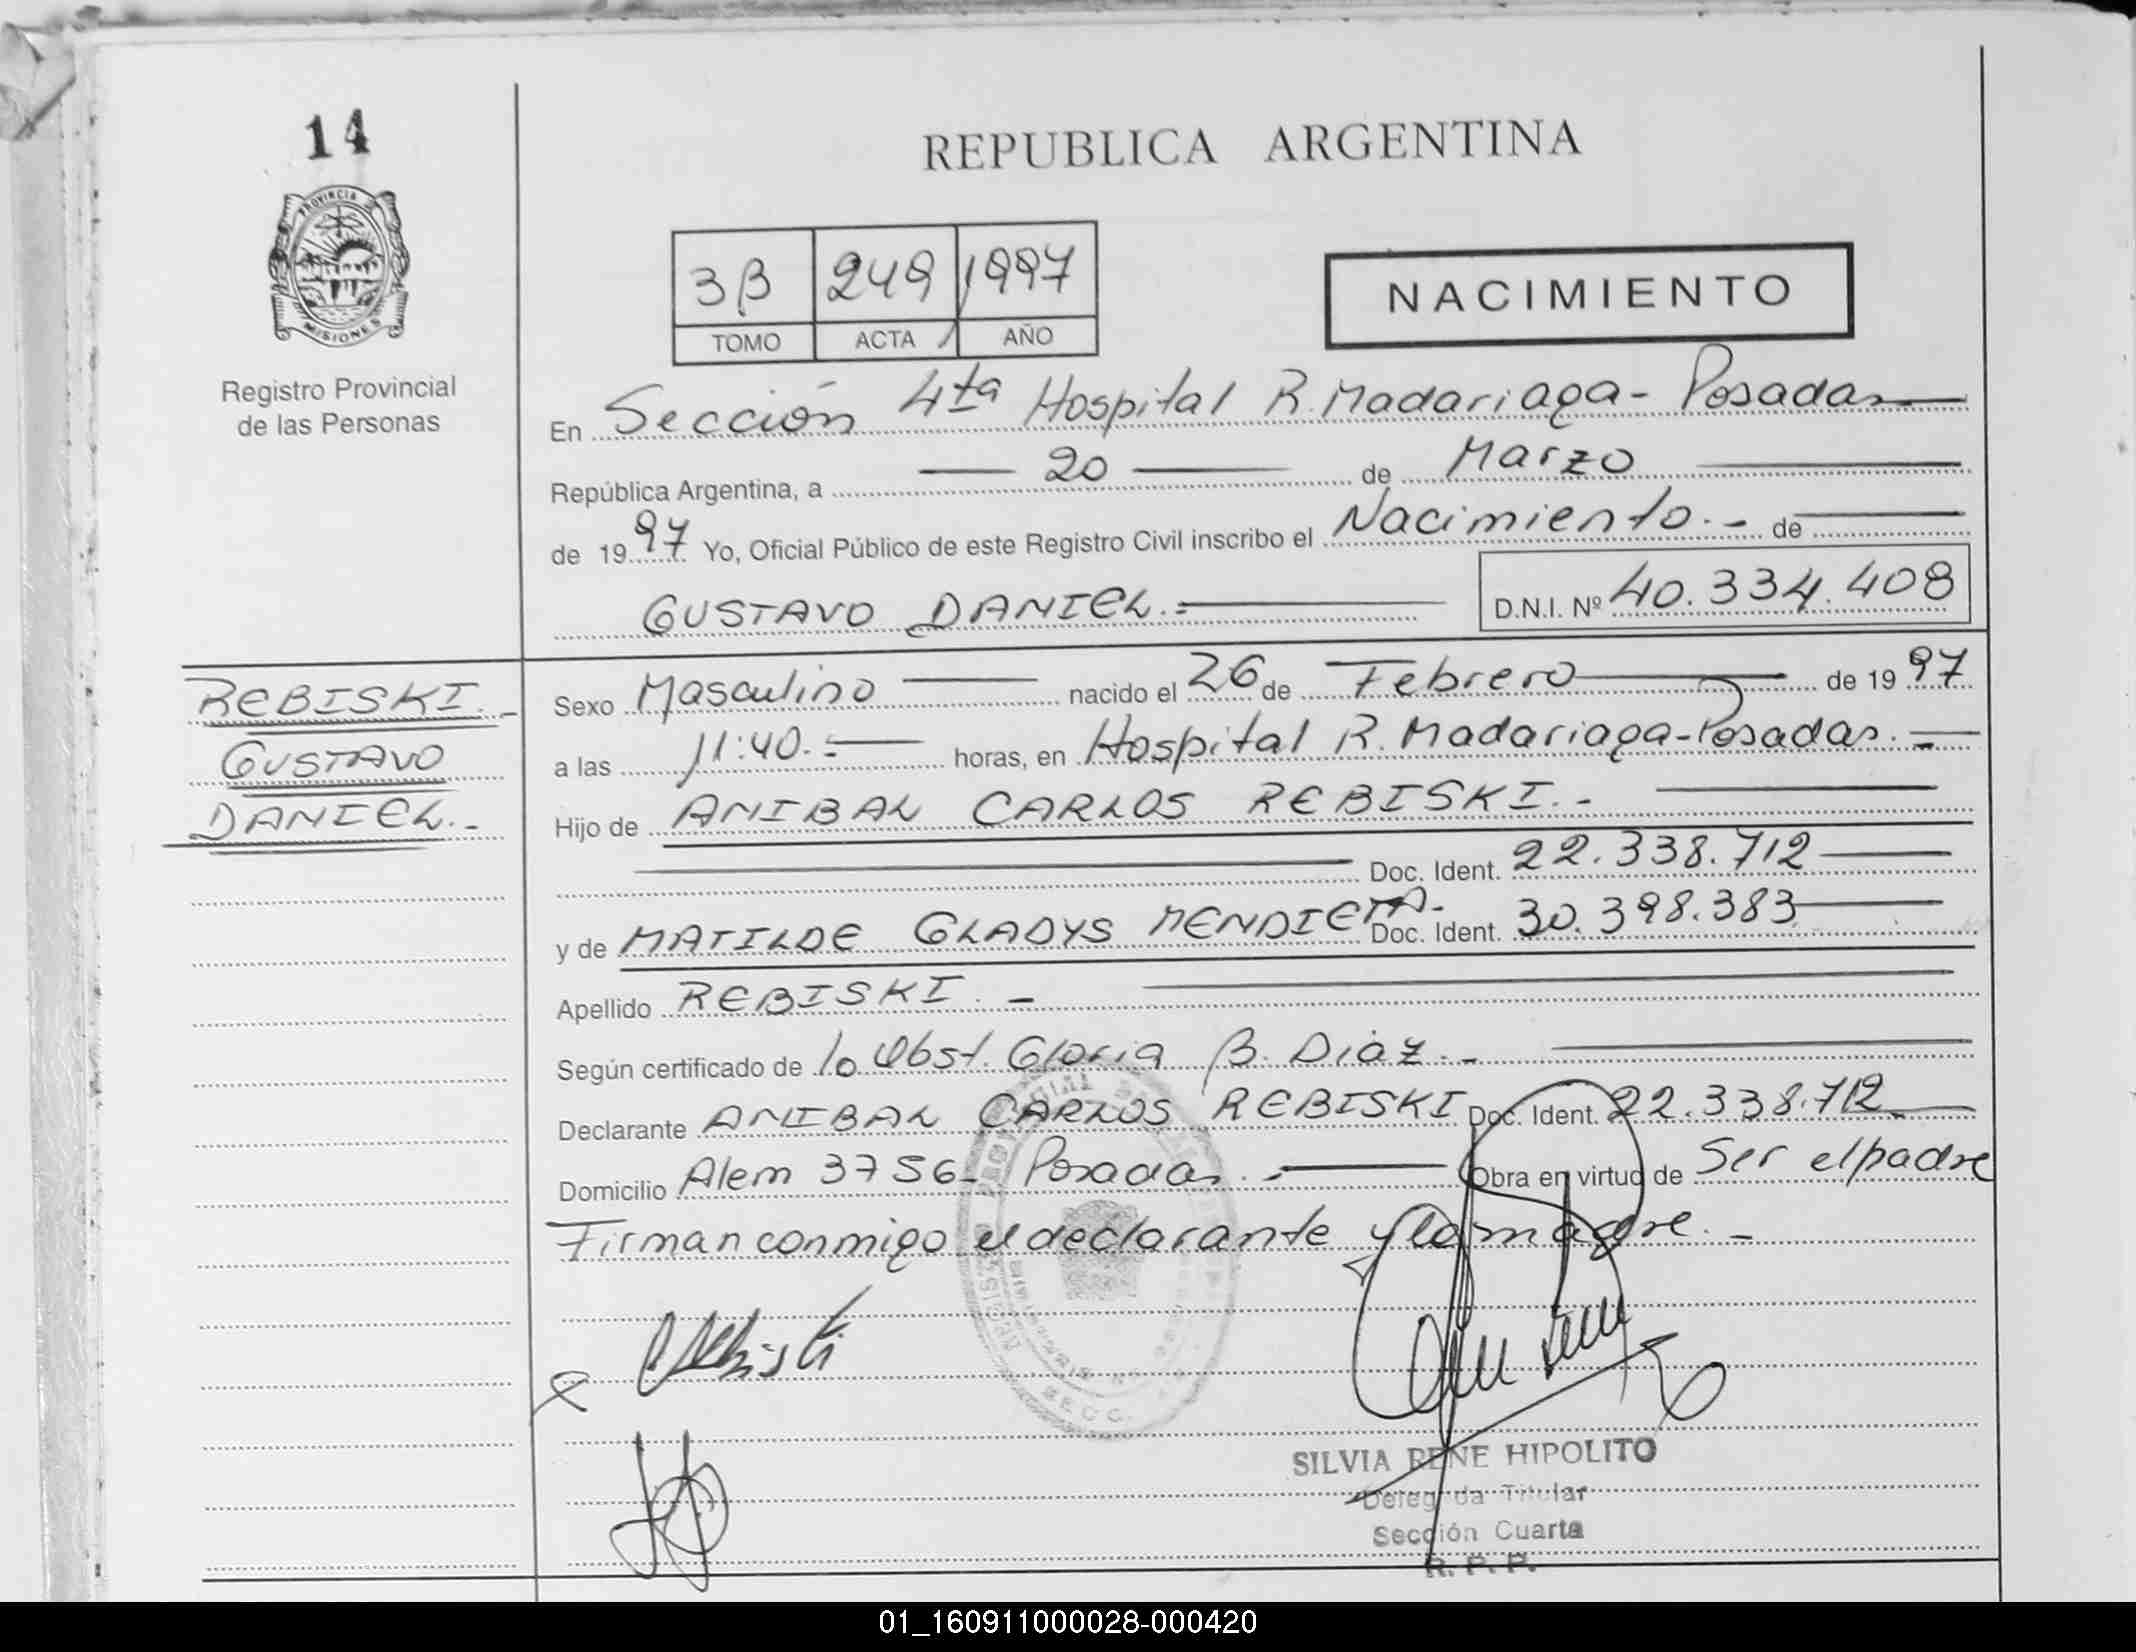 14
PROVINCIA
MISIONES
Registro Provincial
de las Personas
REPUBLICA ARGENTINA
3B 249 1997
TOMO ACTA AÑO
NACIMIENTO
En Sección 4ta Hospital R. Madariaga - Posadas
República Argentina, a 20 de Marzo
de 1997 Yo, Oficial Público de este Registro Civil inscribo el Nacimiento.- de
GUSTAVO DANIEL.= D.N.I. Nº 40.334.408
REBISKI.-
GUSTAVO
DANIEL.-
Sexo Masculino nacido el 26 de Febrero de 1997
a las 11:40.= horas, en Hospital R. Madariaga-Posadas.-
Hijo de ANIBAL CARLOS REBISKI.-
Doc. Ident. 22.338.712
y de MATILDE GLADYS MENDIETA.- Doc. Ident. 30.398.383
Apellido REBISKI.-
Según certificado de la Obst. Gloria B. Diaz.-
Declarante ANIBAL CARLOS REBISKI Doc. Ident. 22.338.712
Domicilio Alem 3756- Posadas.- Obra en virtud de Ser el padre
Firman conmigo el declarante y la madre.-
SECC.
SILVIA RENE HIPOLITO
Delegada Titular
Sección Cuarta
R. P. P.
01_160911000028-000420